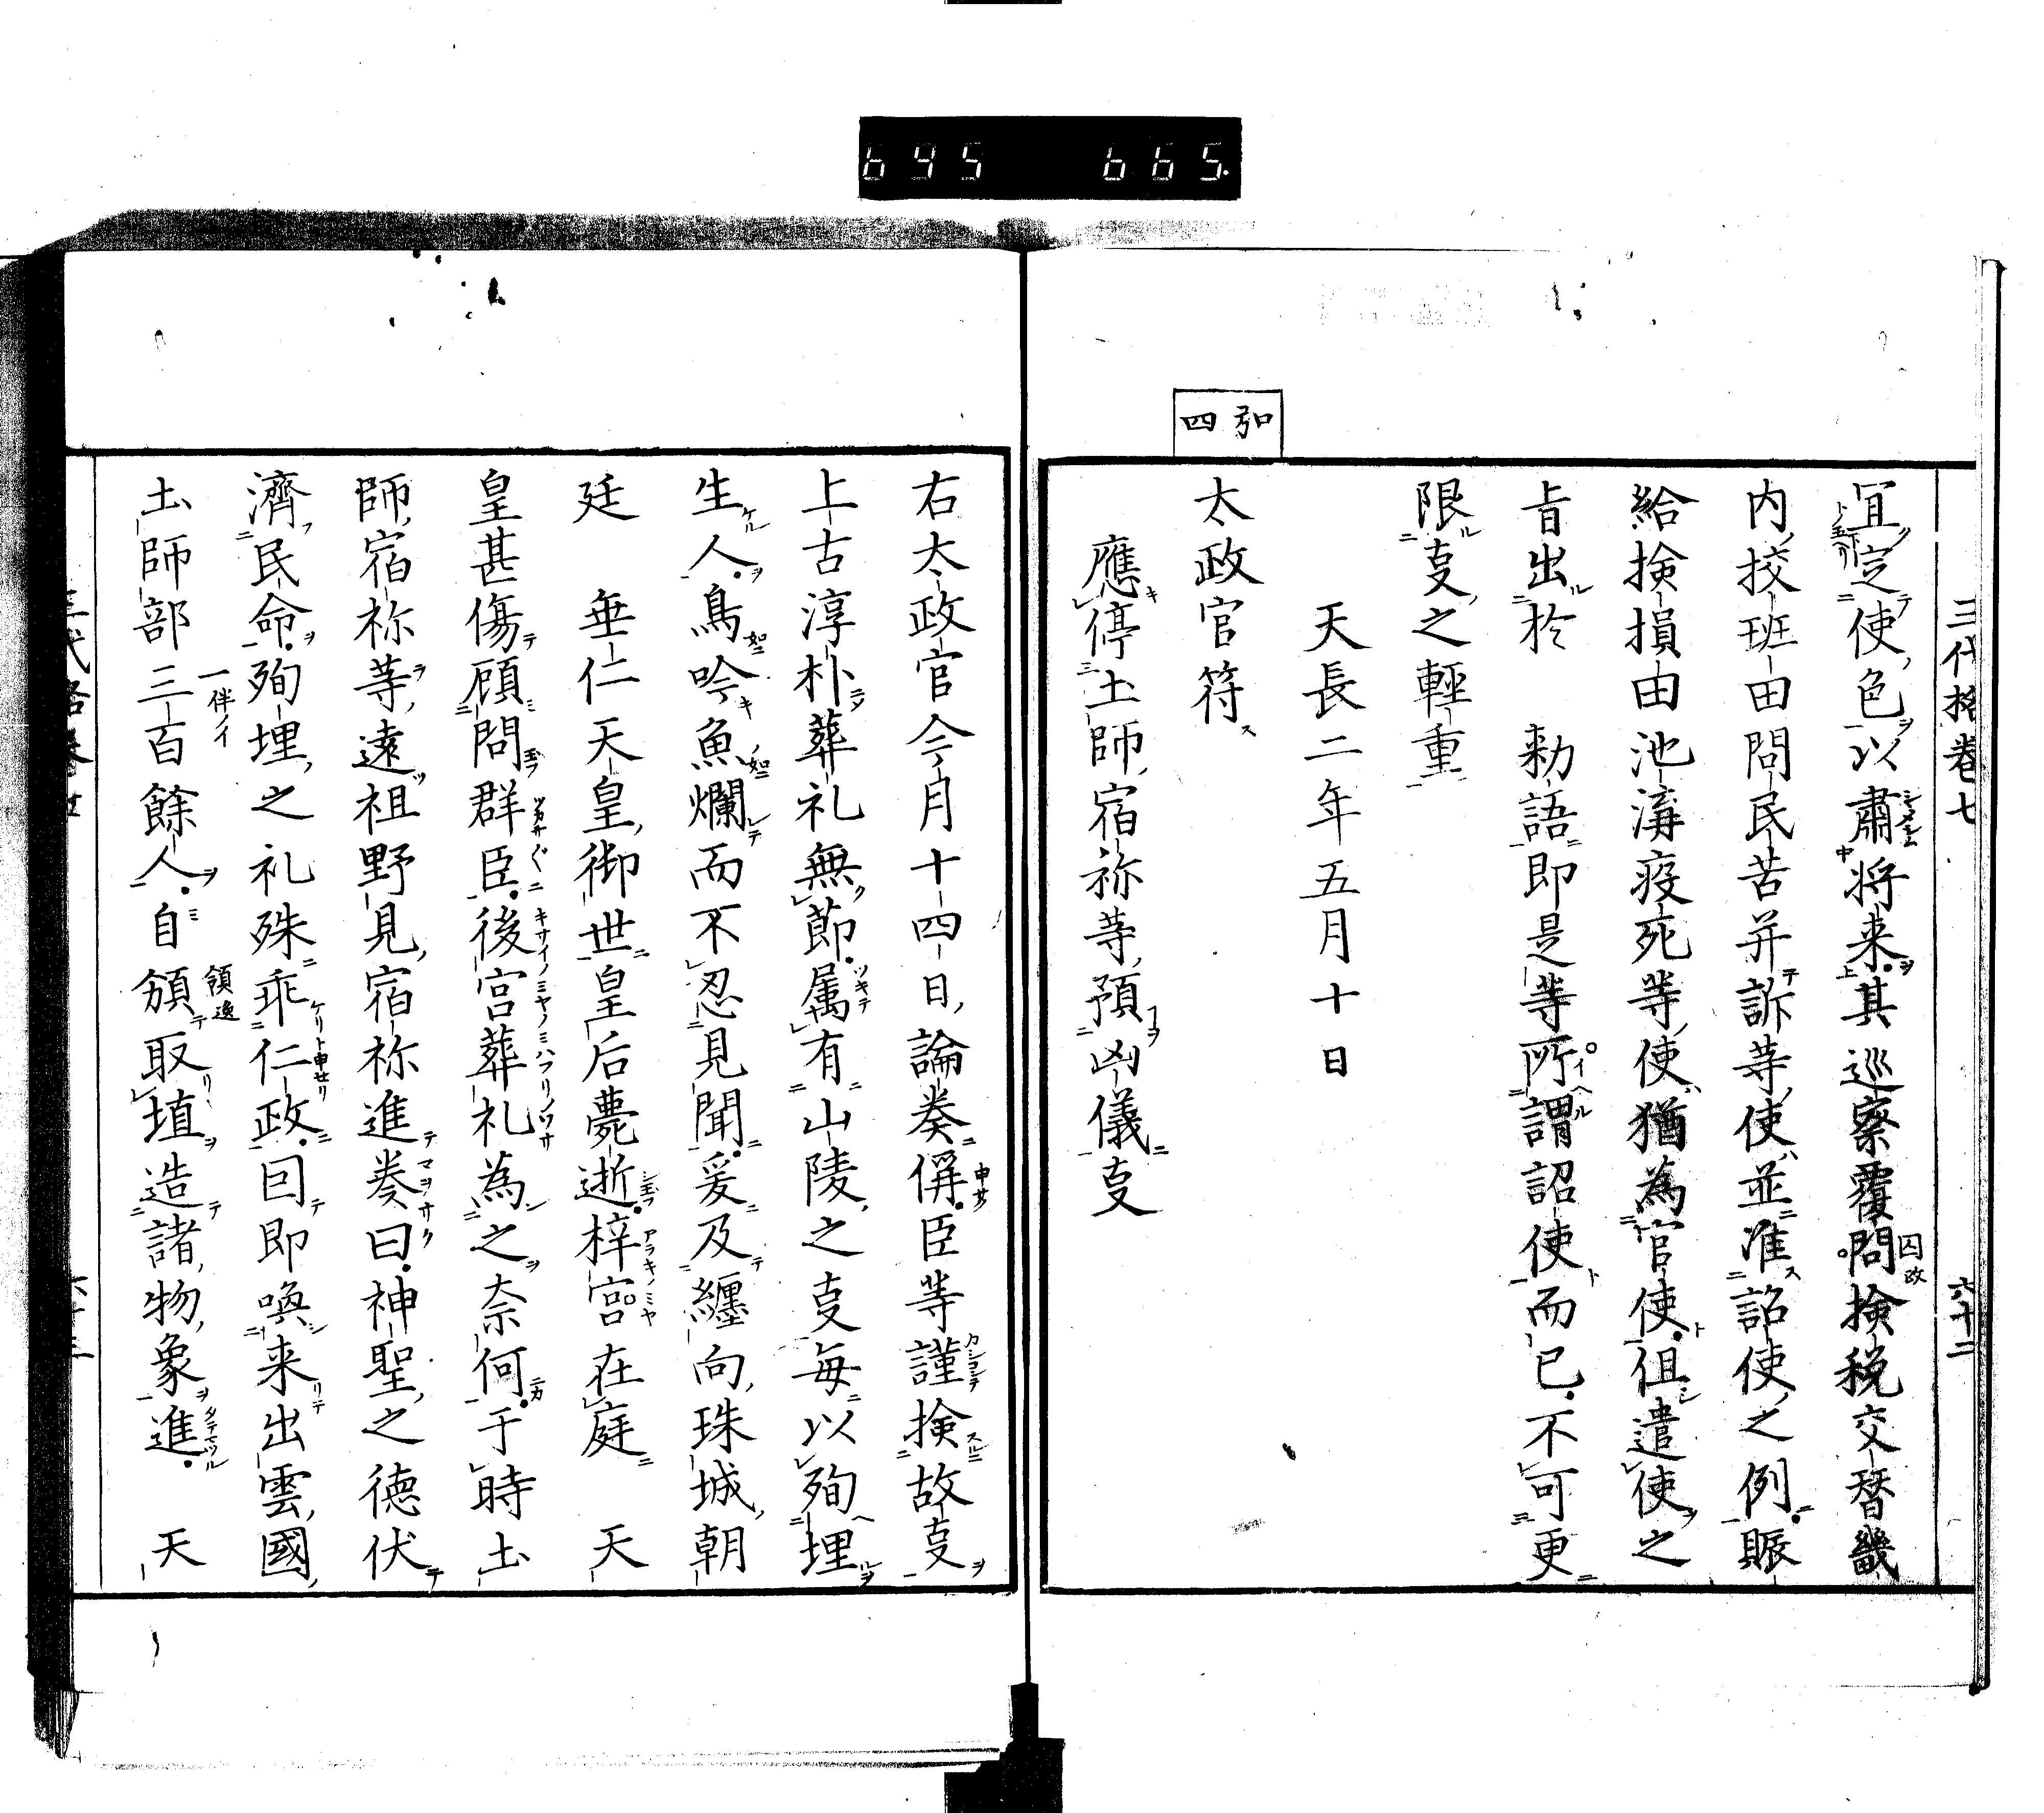 645 665.
三代格卷七 六十二
宜定使色以肅將来其巡察覆問検税交替畿
内挍班田問民苦并訴等使並准詔使之例賑
給検損由池溝疫死等使猶為官使但遣使之
旨出於 勅語即是等所謂詔使而已不可更
限㕝之輕重
天長二年五月十日
弘四
太政官符
應停土師宿祢等預凶儀㕝
右太政官今月十四日論奏偁臣等謹検故㕝
上古淳朴葬礼無節属有山陵之㕝每以殉埋
生人鳥吟魚爛而不忍見聞爰及纏向珠城朝
廷 垂仁天皇御世皇后薨逝梓宮在庭 天
皇甚傷顧問群臣後宮葬礼為之奈何于時土
師宿祢等遠祖野見宿祢進奏曰神聖之徳伏
濟民命殉埋之礼殊乖仁政因即喚来出雲國
土師部三百餘人自頒取埴造諸物象進 天